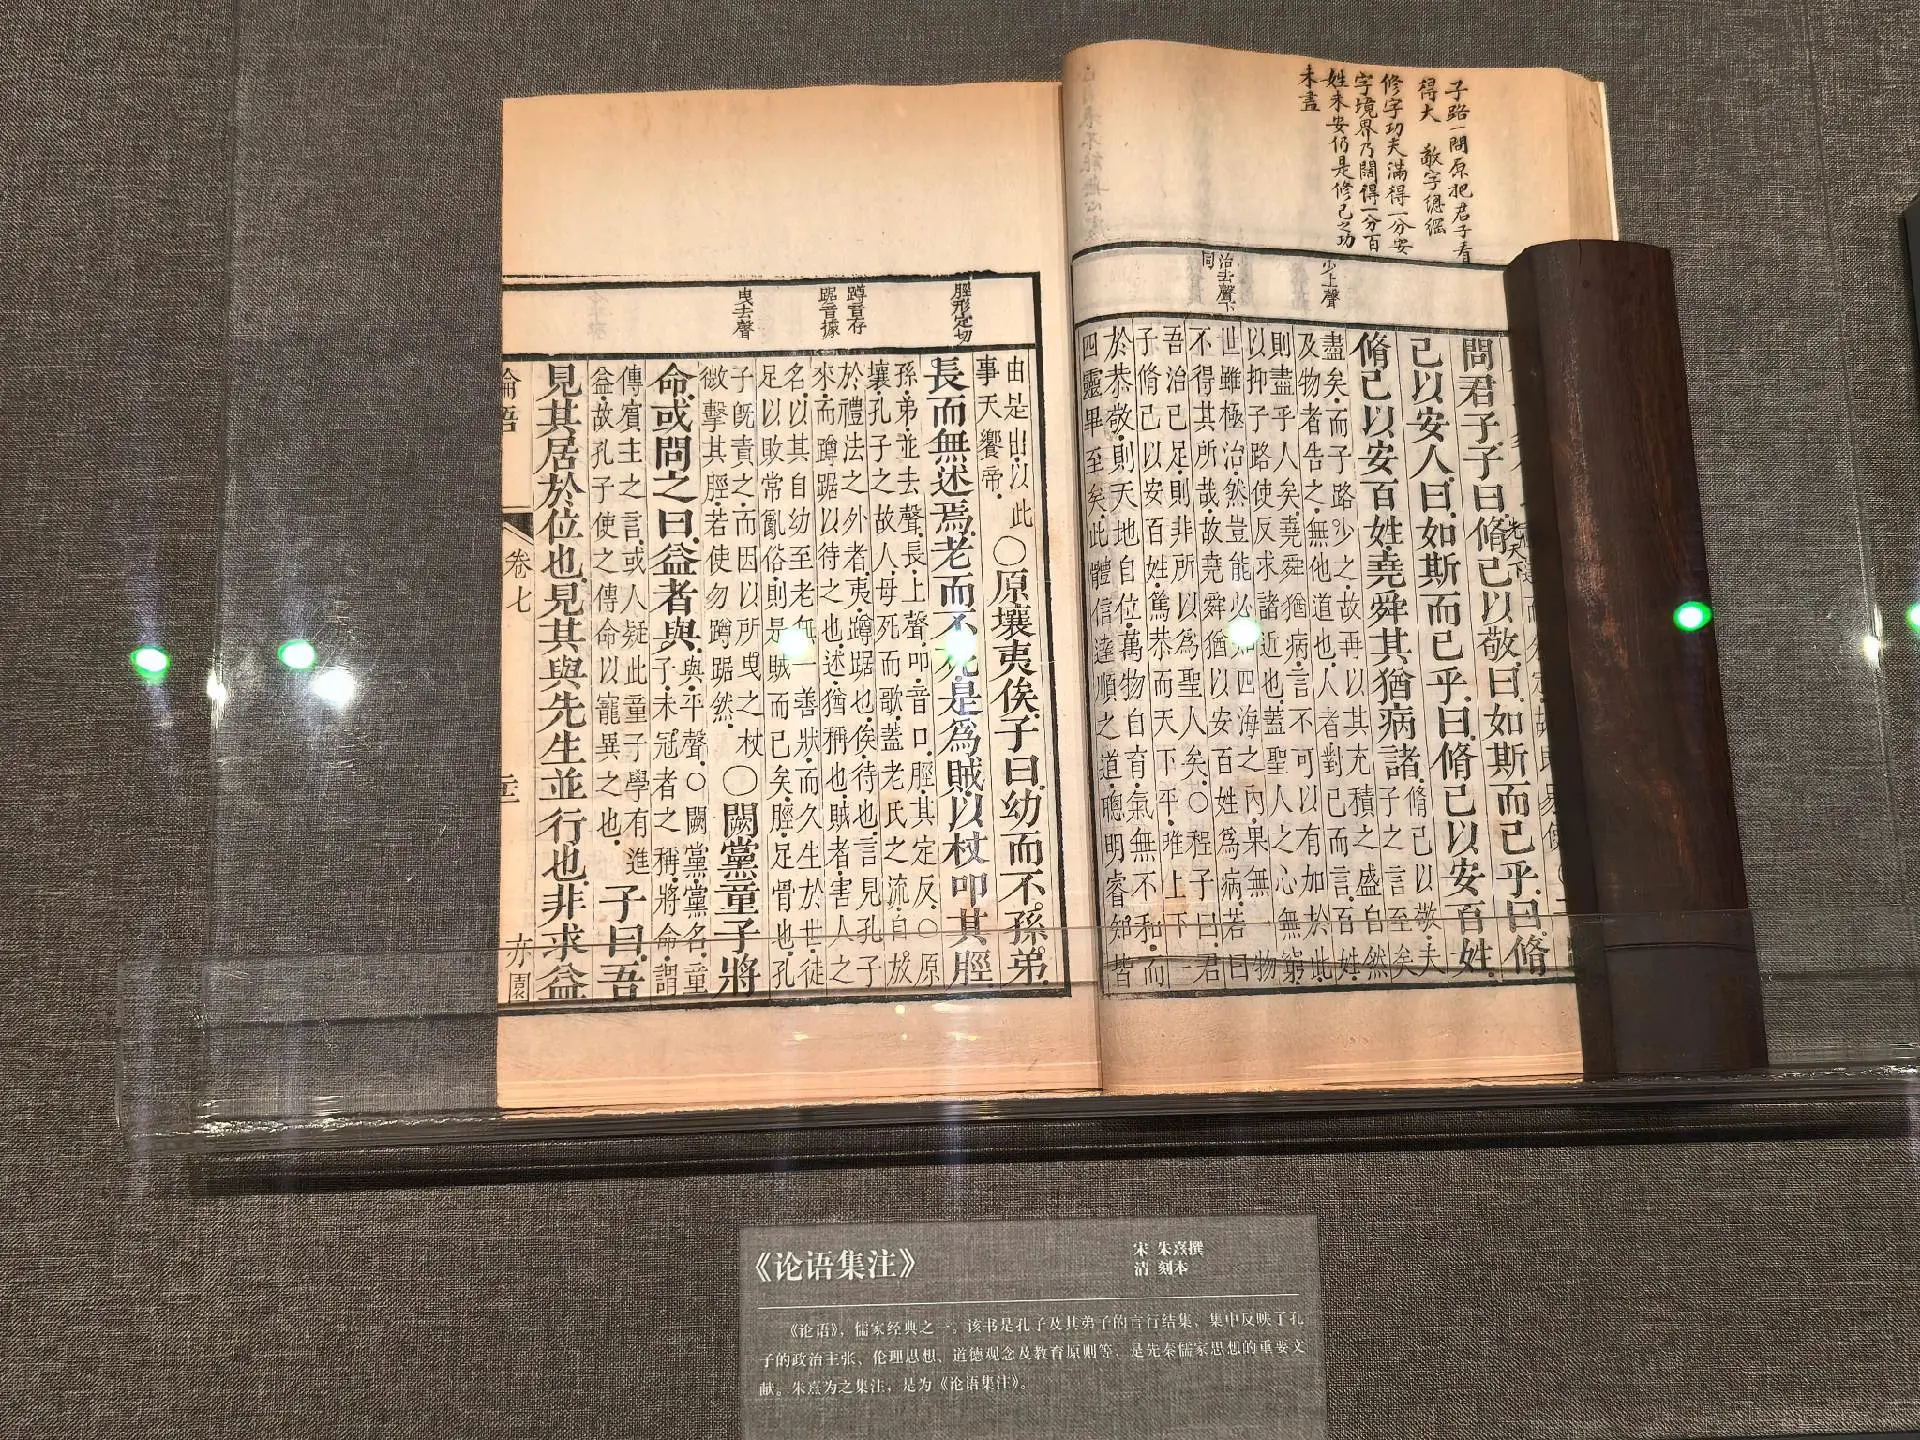 子路一問原把君子看
得大 敬字總綱
修字功夫滿得一分安
字境界乃闊得一分百
姓未安仍是修己之功
未盡
少上聲
治去聲下
同
問君子子曰脩己以敬曰如斯而已乎曰脩
己以安人曰如斯而已乎曰脩己以安百姓
脩己以安百姓堯舜其猶病諸
脩己以敬夫
子之言至矣
盡矣而子路少之故再以其充積之盛自然
及物者告之無他道也人者對己而言百姓
則盡乎人矣堯舜猶病言不可以有加於此
以抑子路使反求諸近也蓋聖人之心無窮
世雖極治然豈能必知四海之內果無一物
不得其所哉故堯舜猶以安百姓爲病若曰
吾治已足則非所以爲聖人矣○程子曰君
子脩己以安百姓篤恭而天下平唯上下
於恭敬則天地自位萬物自育氣無不和而
四靈畢至矣此體信達順之道聰明睿知皆
脛形定切
蹲音存
踞音據
曳去聲
由是出以此
事天饗帝
○原壤夷俟子曰幼而不孫弟
長而無述焉老而不死是爲賊以杖叩其脛
孫弟並去聲長上聲叩音口脛其定反○原
壤孔子之故人母死而歌蓋老氏之流自放
於禮法之外者夷蹲踞也俟待也言見孔子
來而蹲踞以待之也述猶稱也賊者害人之
名以其自幼至老無一善狀而久生於世徒
足以敗常亂俗則是賊而已矣脛足骨也孔
子旣責之而因以所曳之杖
微擊其脛若使勿蹲踞然
○闕黨童子將
命或問之曰益者與
與平聲○闕黨黨名童
子未冠者之稱將命謂
傳賓主之言或人疑此童子學有進
益故孔子使之傳命以寵異之也
子曰吾
見其居於位也見其與先生並行也非求益
論語 卷七
《论语集注》
宋 朱熹撰
清 刻本
《论语》，儒家经典之一。该书是孔子及其弟子的言行结集，集中反映了孔
子的政治主张、伦理思想、道德观念及教育原则等，是先秦儒家思想的重要文
献。朱熹为之集注，是为《论语集注》。